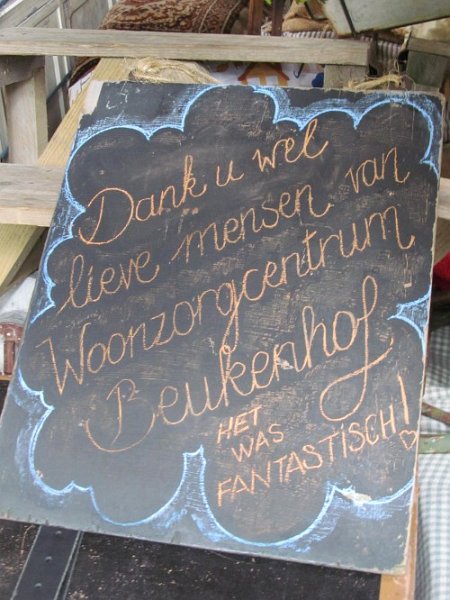 Dank u wel
lieve mensen van
Woonzorgcentrum
Beukenhof
HET
WAS
FANTASTISCH!